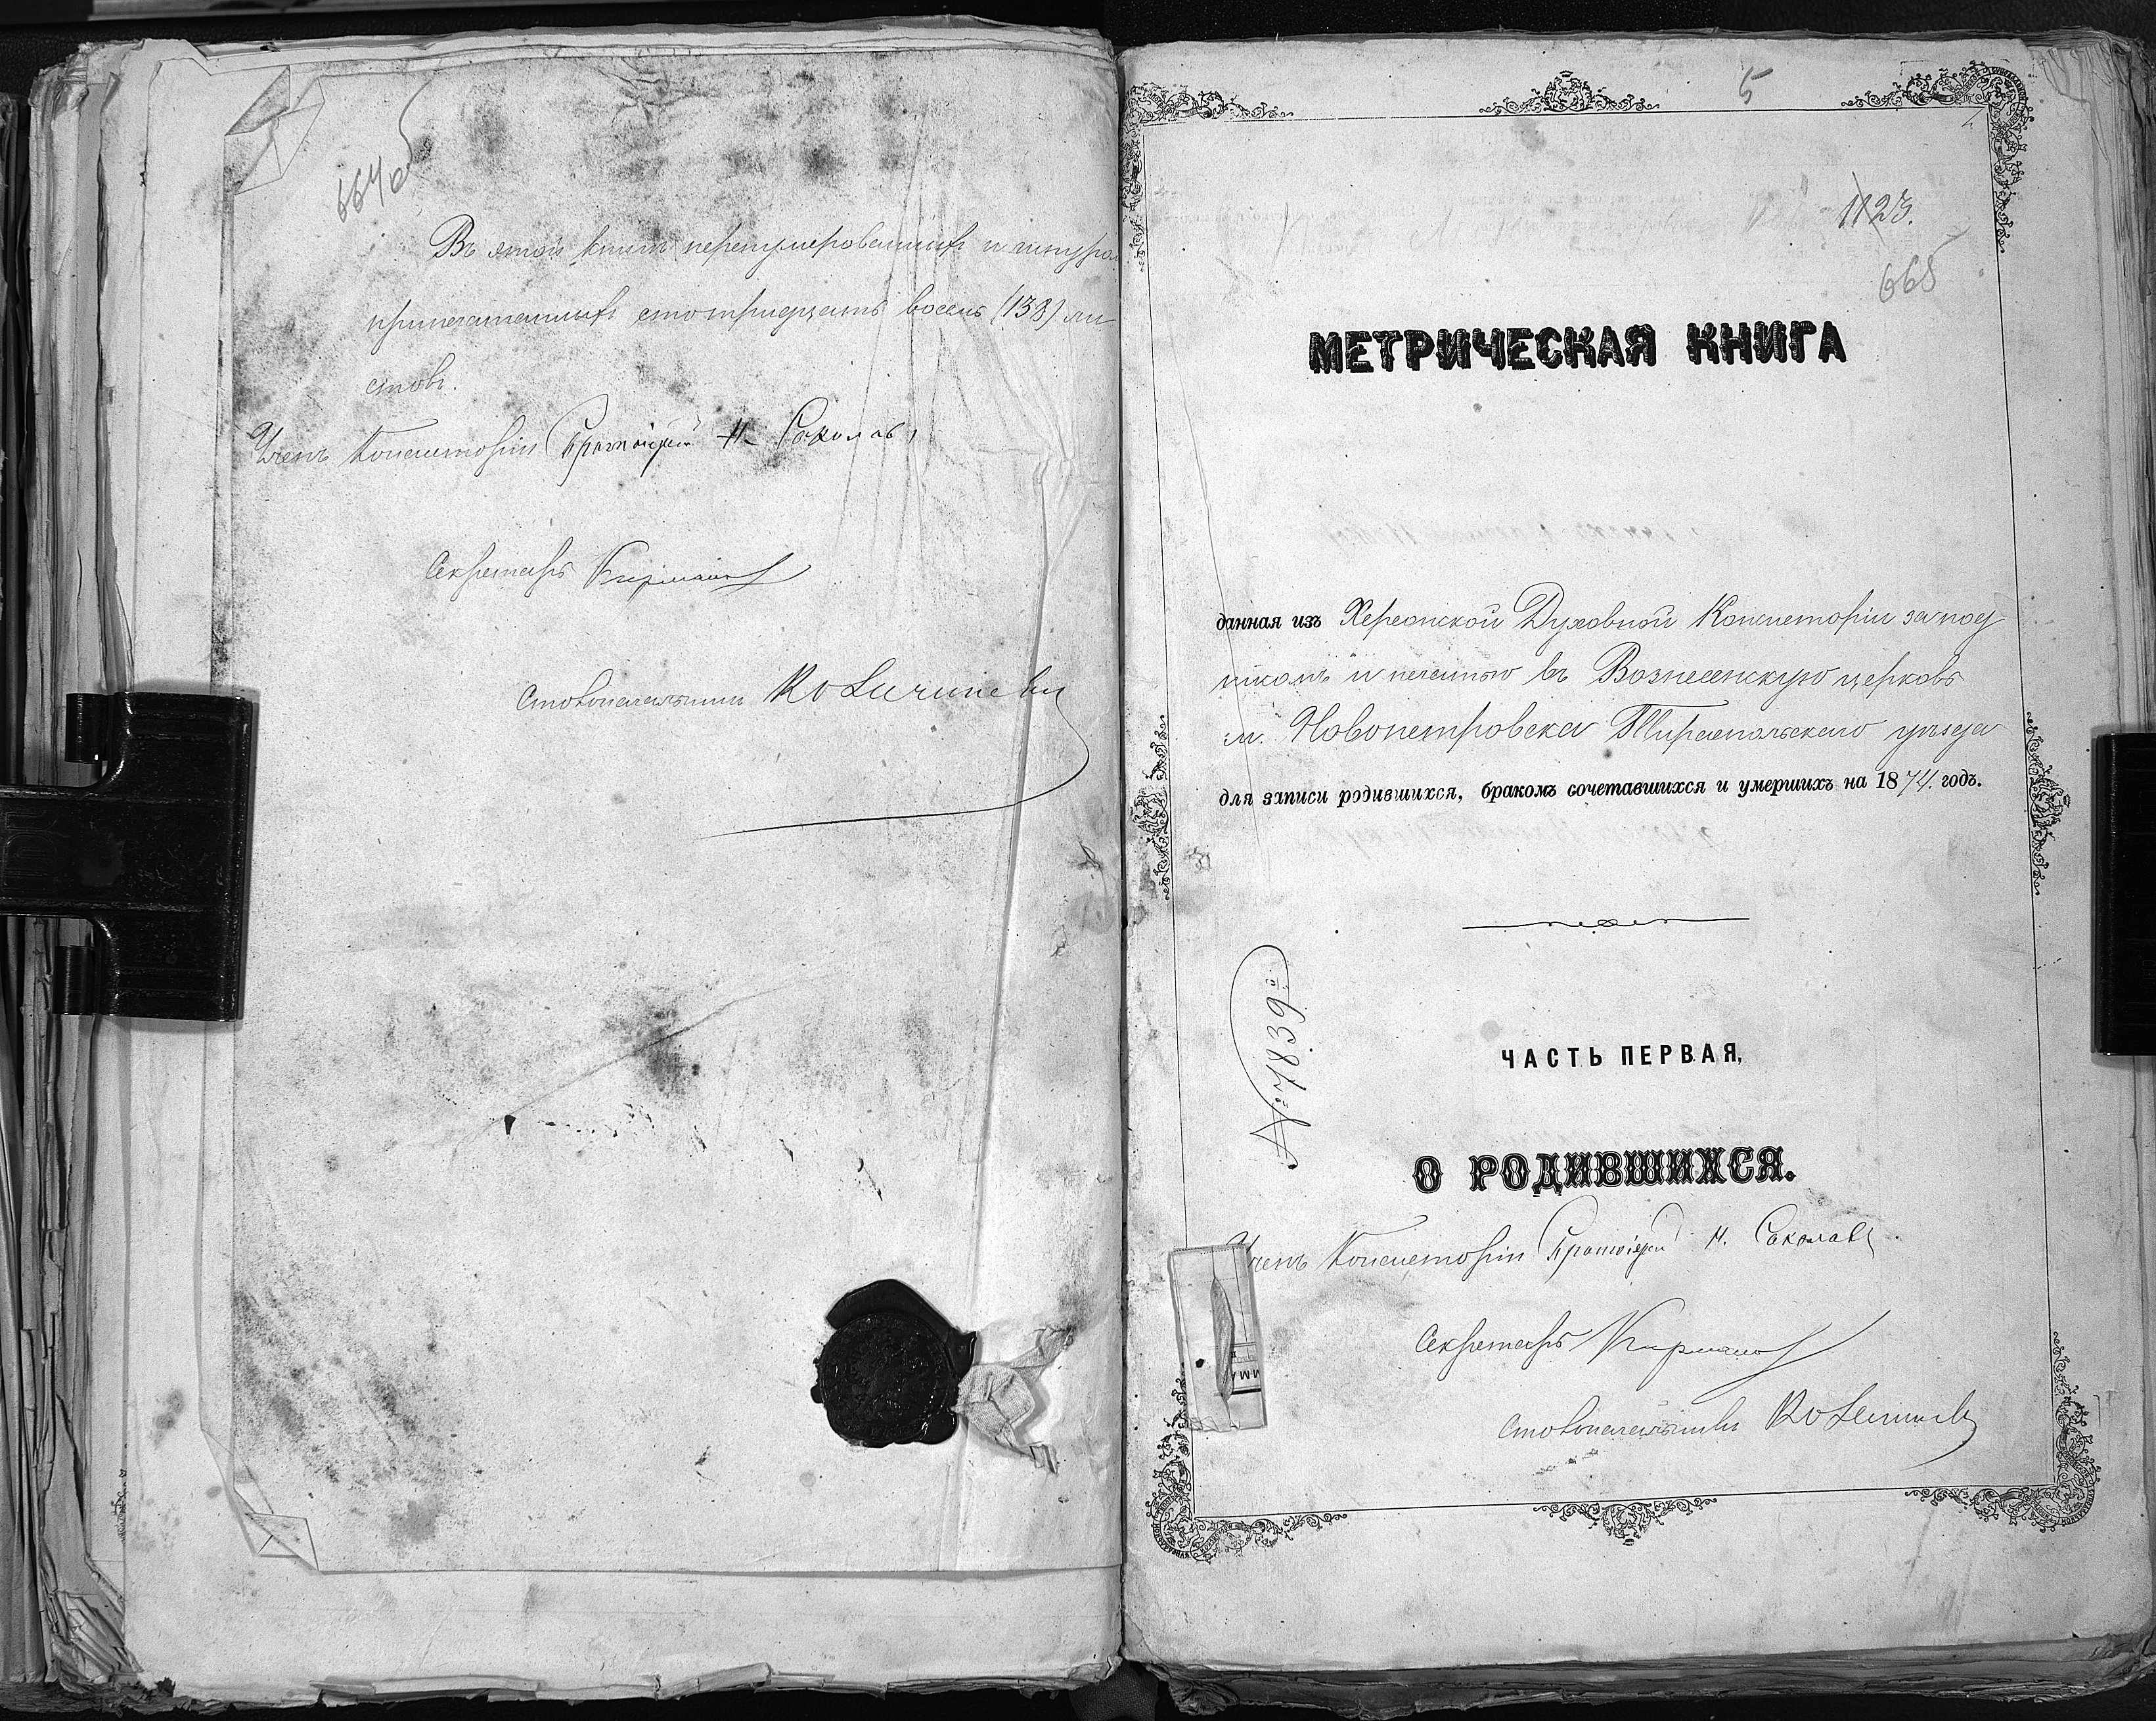 664об
Въ этой книгѣ перенумерованныхъ и шнуро
припечатанныхъ сто тридцать восемь (138) ли
стовъ.
Членъ Консисторіи Протоіерей Н. Соколовъ
Секретарь
Столоначальникъ
5
1123.
665
МЕТРИЧЕСКАЯ КНИГА
данная изъ Херсонской Духовной Консисторіи за под
писомъ и печатью въ Вознесенскую церковь
м. Новопетровска Тираспольскаго уѣзда
для записи родившихся, бракомъ сочетавшихся и умершихъ на 1874. годъ.
ЧАСТЬ ПЕРВАЯ,
О РОДИВШИХСЯ.
Членъ Консисторіи Протоіерей Н. Соколовъ
Секретарь
Столоначальникъ
№ 7839